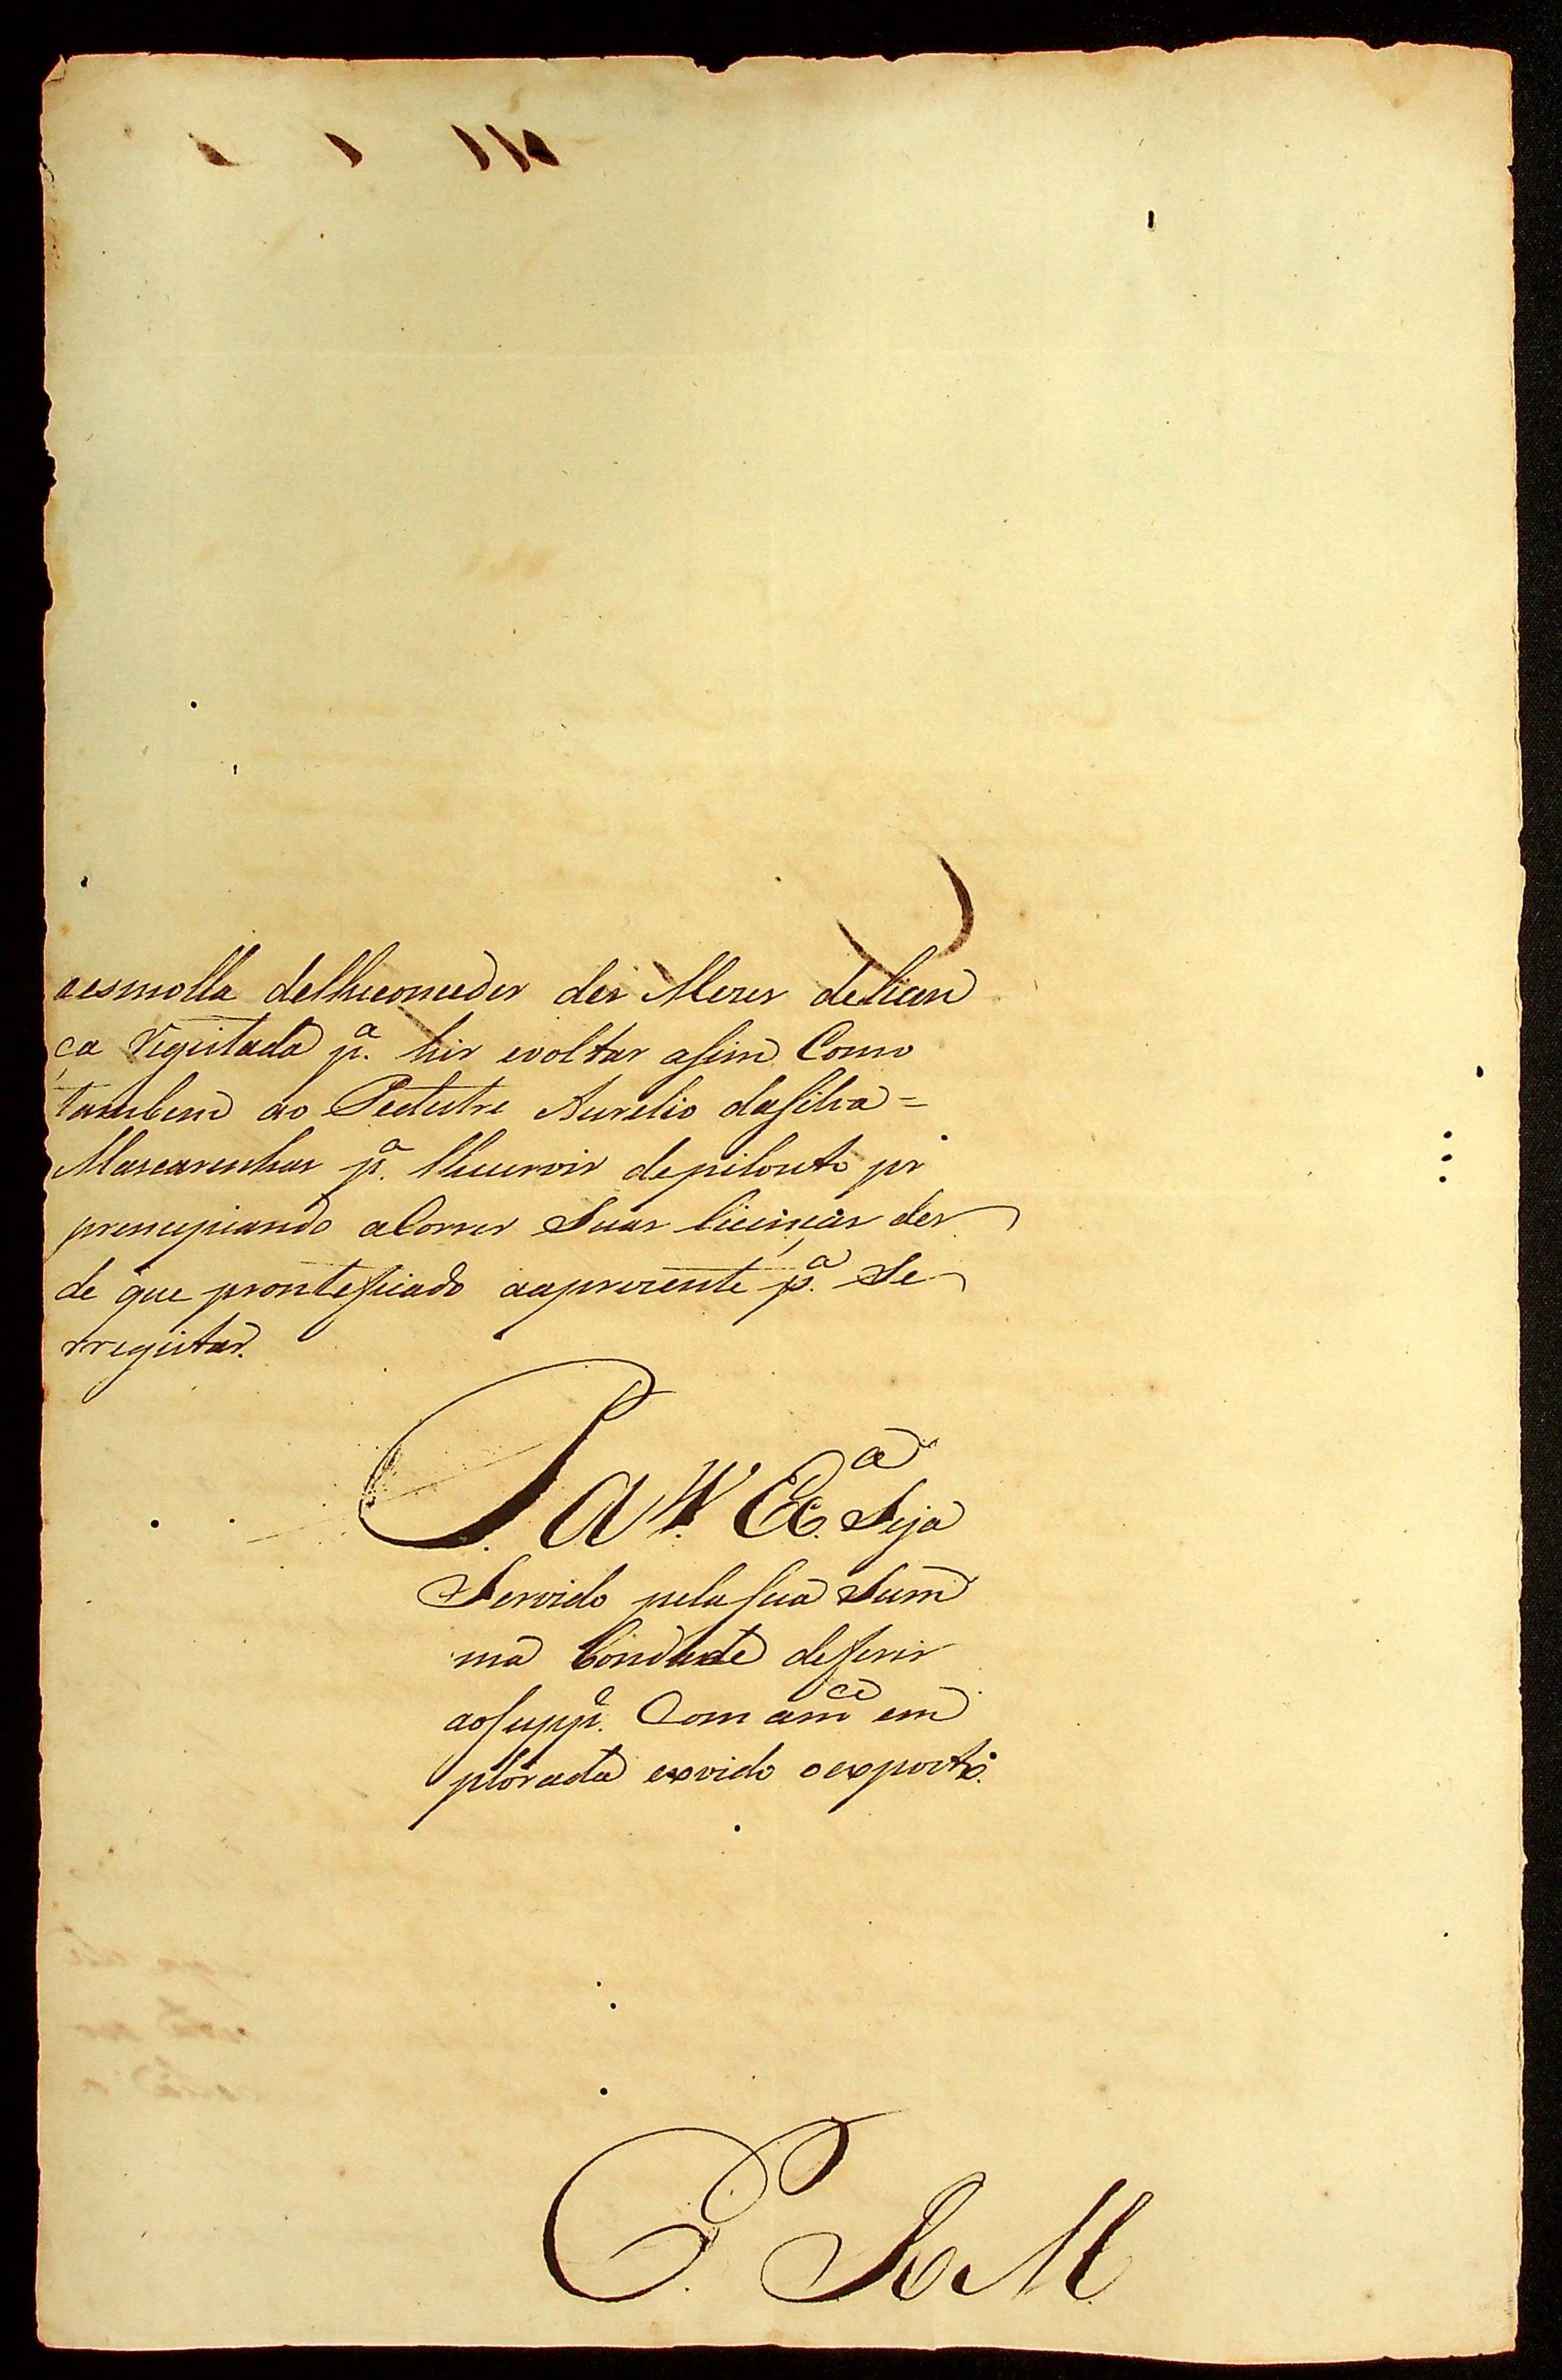 aesmolla delheconseder des Mezes delicen
ça registada p.ª hir evoltar asim Como
tambem ao Pedestre Aurelio dasilva=
Mascarenhas p.ª lheservir depilouto pr
prencipiando aCorrer Suas licenças des
de que pronteficado aaprezente p.ª Se
rregistar.
P. a V. Ex.ª Seja
Servido pela sua Sum
ma bondade deferir
aosupp.e Com amce em
plorada exvido oexposto.
E. R. M.